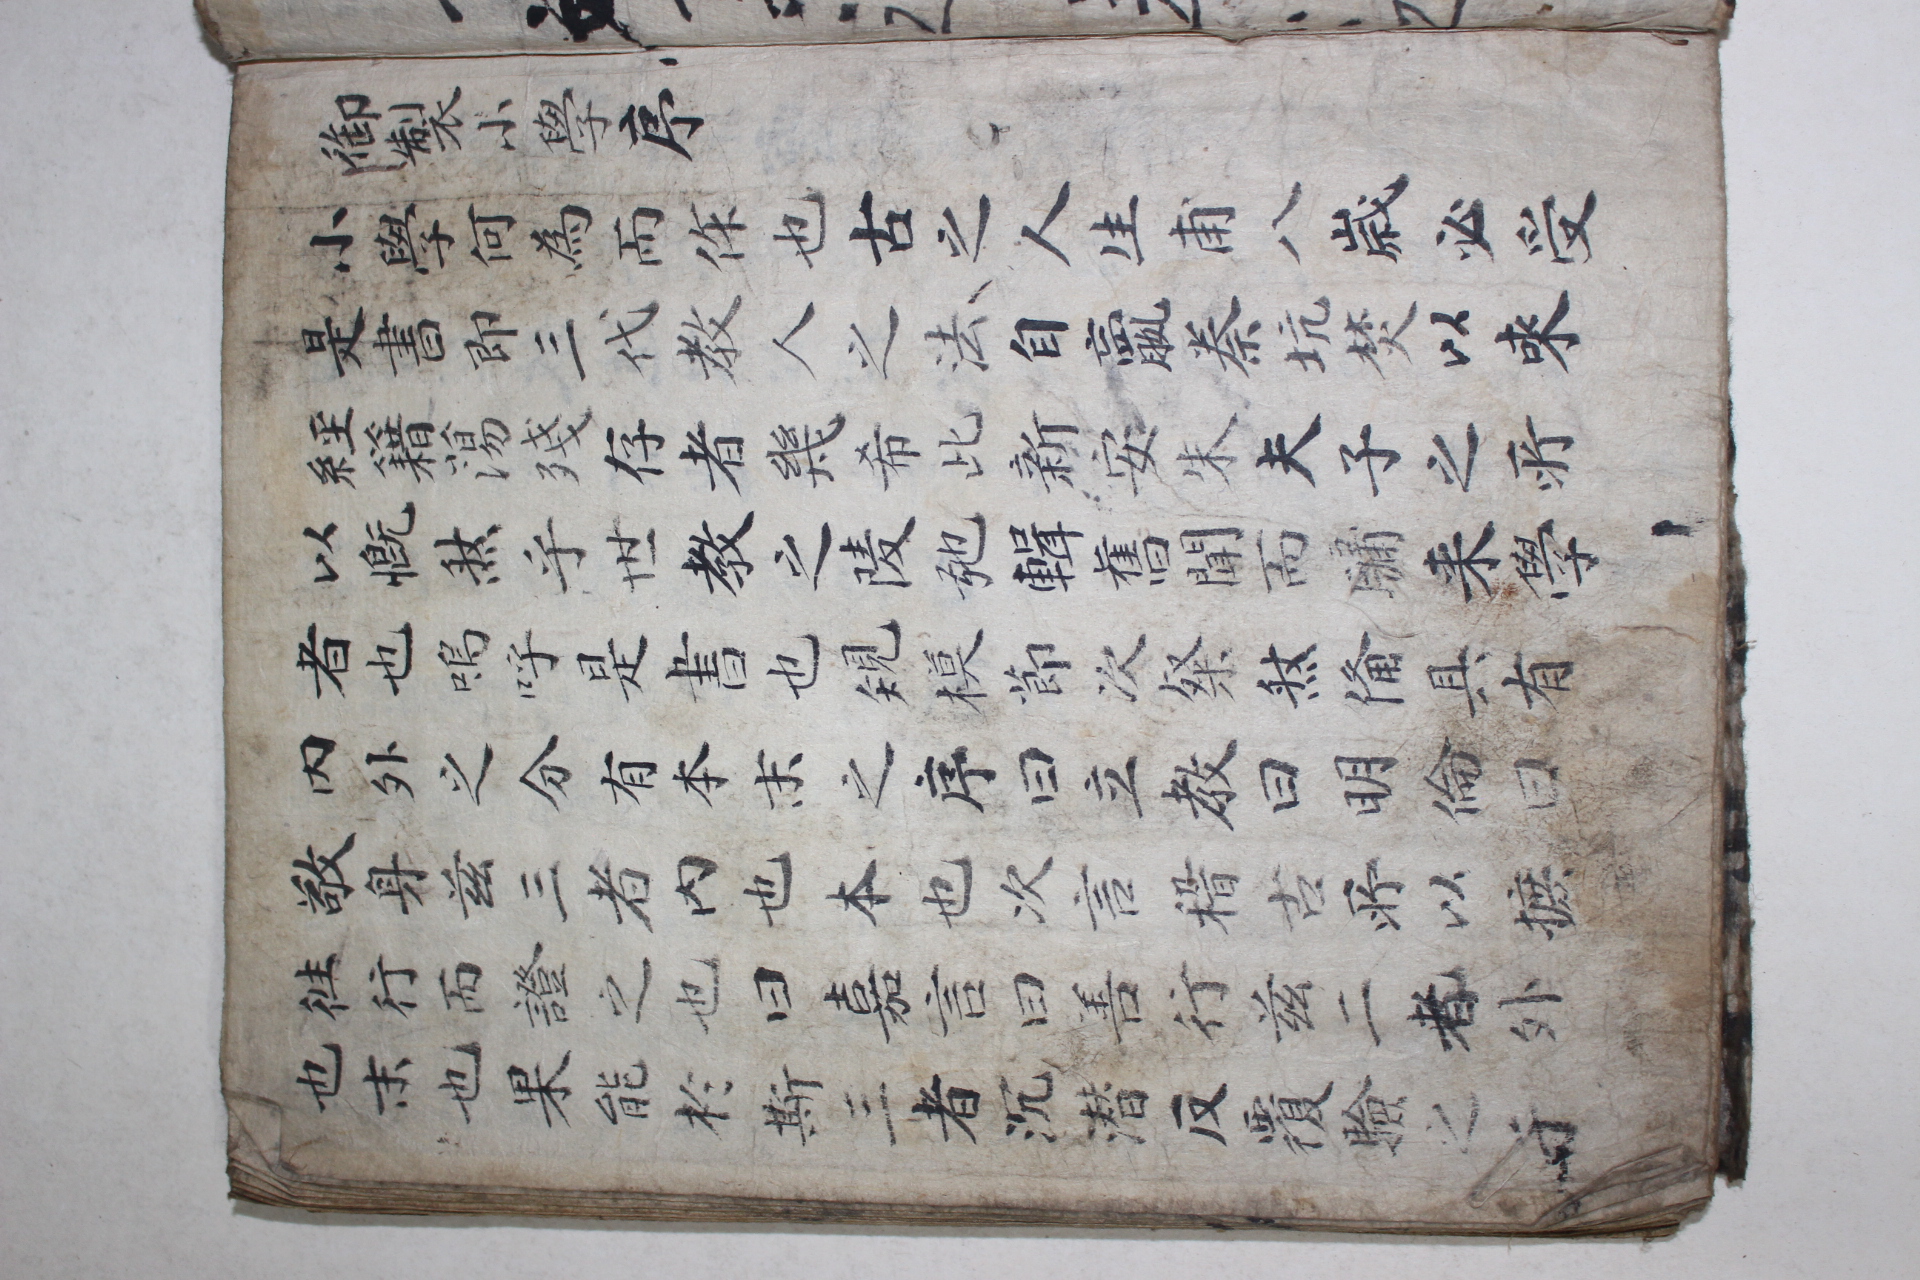 御製小學序
小學何為而作也古之人生甫八歲必受
是書即三代教人之法自嬴秦坑焚以來
經籍湯殘存者幾希此新安朱夫子之所
以慨然乎世教之陵弛輯舊聞而牖来學
者也嗚呼是書也規模節次粲然備具有
內外之分有本末之序曰立教曰明倫曰
敬身茲三者內也本也次言稽古所以摭
往行而證之也曰嘉言曰善行茲二者外
也末也果能於斯三者沉潜反覆驗之